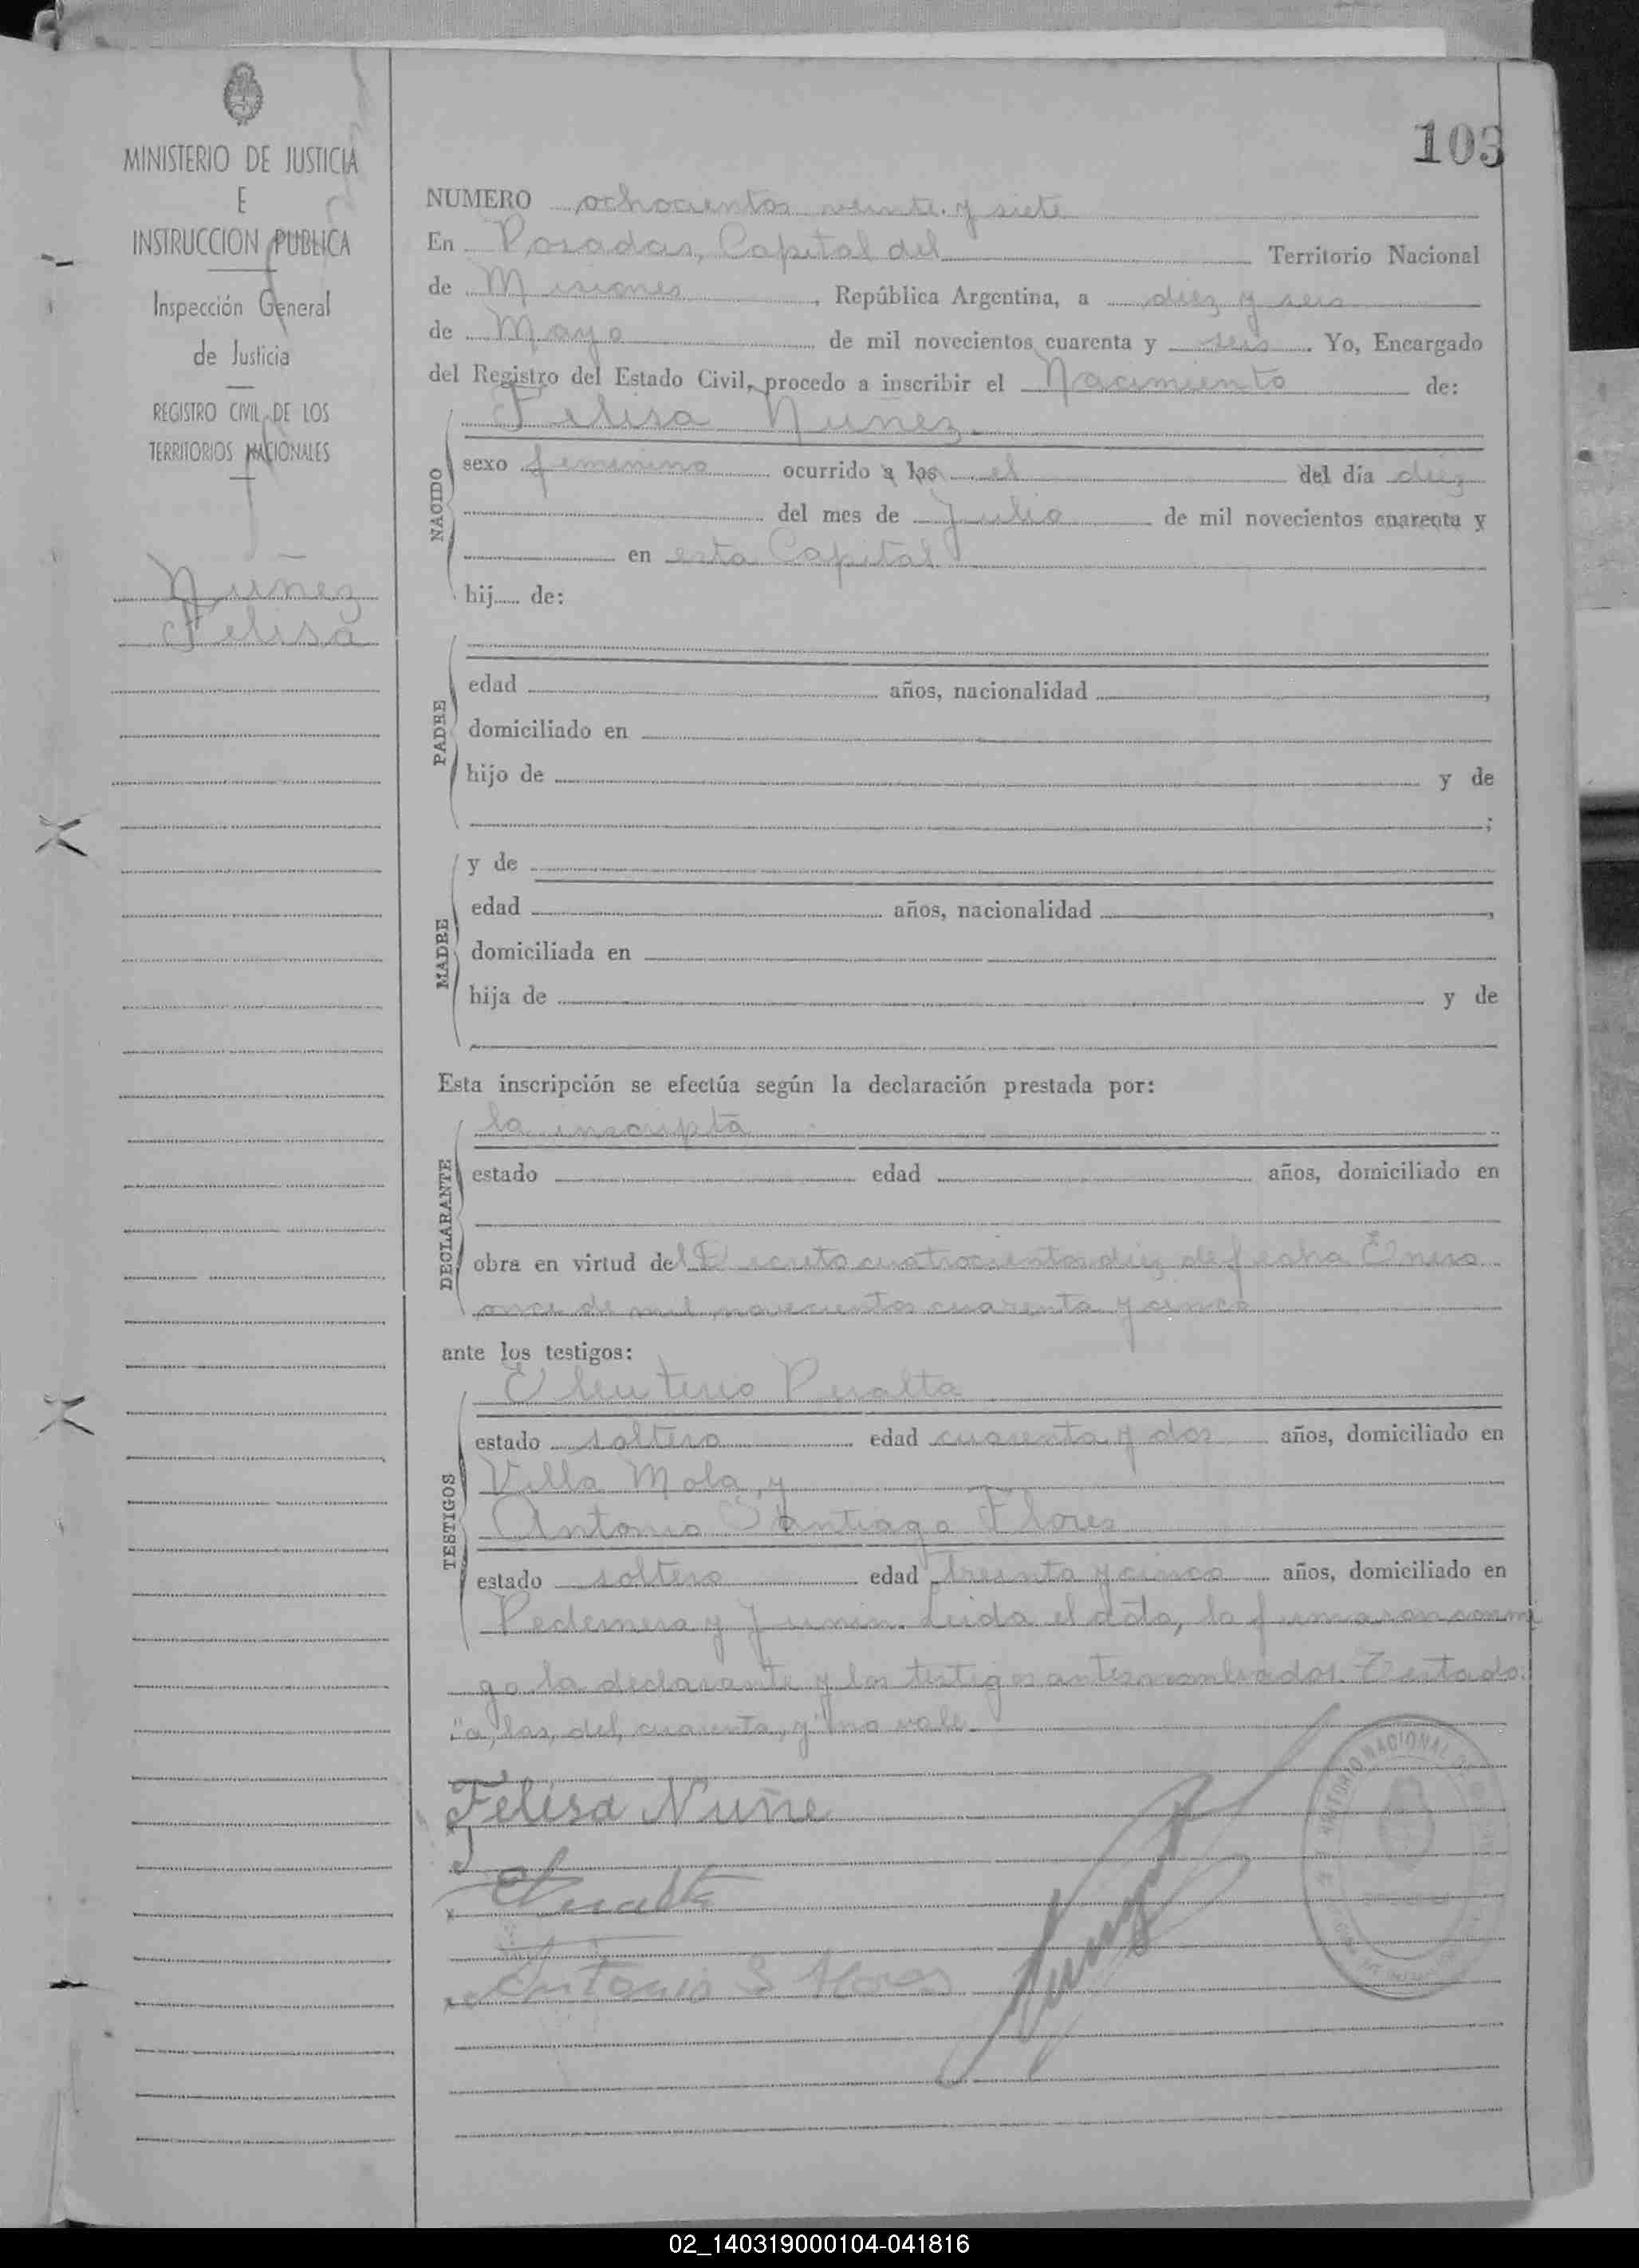 103
MINISTERIO DE JUSTICIA
E
INSTRUCCION PUBLICA
Inspección General
de Justicia
REGISTRO CIVIL DE LOS
TERRITORIOS NACIONALES
Nuñez
Felisa
NUMERO ochocientos veinte y siete
En Posadas, Capital del Territorio Nacional
de Misiones, República Argentina, a diez y seis
de Mayo de mil novecientos cuarenta y seis. Yo, Encargado
del Registro del Estado Civil, procedo a inscribir el Nacimiento de:
NACIDO
Felisa Nuñez
sexo femenino ocurrido a las el del día diez
del mes de Julio de mil novecientos cuarenta y
en esta Capital
hij de:
PADRE
edad años, nacionalidad ,
domiciliado en
hijo de y de
;
MADRE
y de
edad años, nacionalidad ,
domiciliada en
hija de y de
Esta inscripción se efectúa según la declaración prestada por:
DECLARANTE
la inscripta
estado edad años, domiciliado en
obra en virtud del Decreto cuatrocientos diez de fecha Enero
once de mil novecientos cuarenta y cinco
ante los testigos:
TESTIGOS
Eleuterio Peralta
estado soltero edad cuarenta y dos años, domiciliado en
Villa Mola, y
Antonio Santiago Flores
estado soltero edad treinta y cinco años, domiciliado en
Pedernera y Junin. Leida el acta, la firmaron conmi
go la declarante y los testigos antes nombrados. Testado:
"a, las, del, cuarenta, y" no vale.
Felisa Nuñe
EPeralta
Antonio S Flores
TERRITORIO NACIONAL
02_140319000104-041816